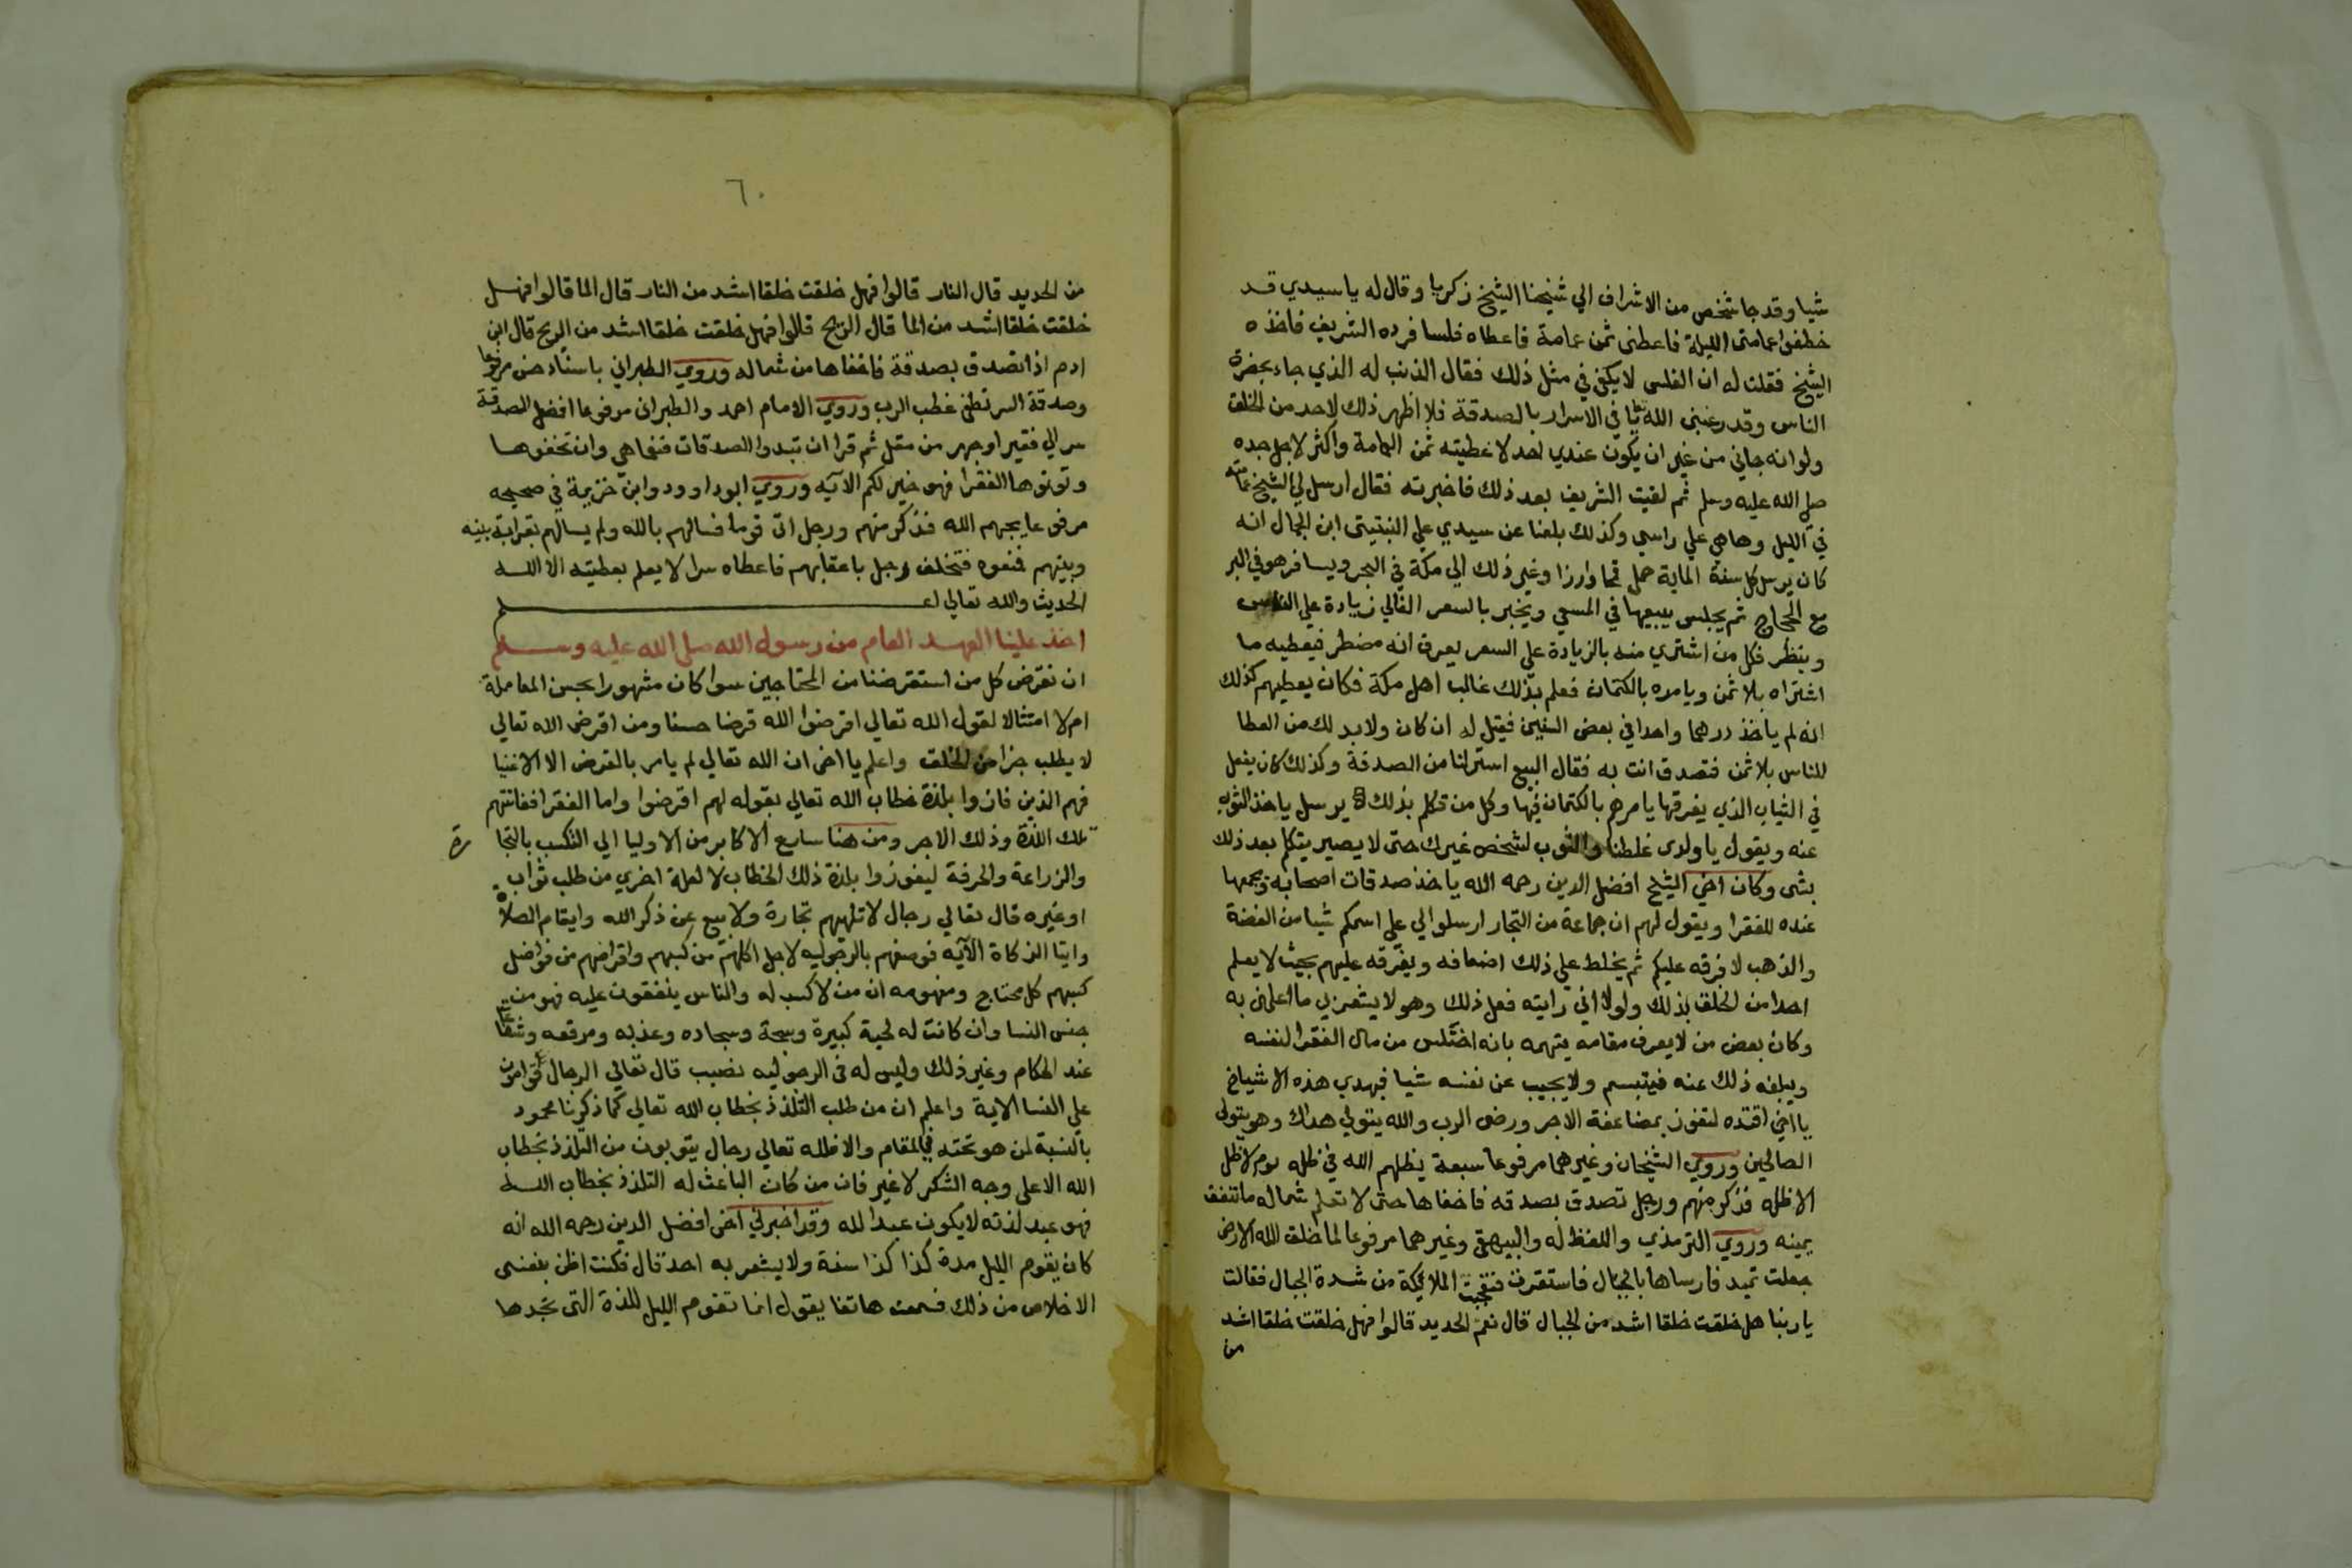 شيا وقد جا شخص من الاشراف الي شيخنا الشيخ زكريا وقال له يا سيدي قد
خطفوا عمامتى الليلة فاعطنى ثمن عمامة فاعطاه فلسا فرده الشريف فاخذه
الشيخ فقلت له ان الفلس لا يكفى في مثل ذلك فقال الذنب له الذي جاء بحضرة
الناس وقد رغبنى الله تعا في الاسرار بالصدقة فلا اظهر ذلك لاحد من الخلق
ولو انه جاني من غير ان يكون عندي احد لاعطيته ثمن العمامة واكثر لاجل جده
صلى الله عليه وسلم ثم لقيت الشريف بعد ذلك فاخبرته فقال ارسل لي الشيخ عمامته
في الليل وها هي علي راسي وكذلك بلغنا عن سيدي علي النبتيتى ابن الجمال انه
كان يرسل كل سنة الماية حمل قمحا وارزا وغير ذلك الي مكة في البحر ويسافر هو في البر
مع الحجاج ثم يجلس يبيعها في المسعي ويخبر بالسعر الغالي زيادة علي الناس
وينظر فكل من اشتري منه بالزيادة علي السعر يعرف انه مضطر فيعطيه ما
اشتراه بلا ثمن ويامره بالكتمان فعلم بذلك غالب اهل مكة فكان يعطيهم كذلك
انه لم ياخذ درهما واحدا في بعض السنين فقيل له ان كان ولا بد لك من العطا
للناس بلا ثمن فتصدق انت به فقال البيع استر لنا من الصدقة وكذلك كان يفعل
في الثياب الذي يفرقها يامرهم بالكتمان فيها وكل من تكلم بذلك يرسل ياخذ الثوب
عنه ويقول يا ولدى غلطنا والثوب لشخص غيرك حتى لا يصير يتكلم بعد ذلك
بشى وكان اخي الشيخ افضل الدين رحمه الله ياخذ صدقات اصحابه ويجمعها
عنده للفقرا ويقول لهم ان جماعة من التجار ارسلوا الي علي اسمكم شيا من الفضة
والذهب لافرقه عليكم ثم يخلط علي ذلك اضعافه ويفرقه عليهم بحيث لا يعلم
احدا من الخلق بذلك ولولا اني رايته فعل ذلك وهو لا يشعر بي ما اعلمنى به
وكان بعض من لا يعرف مقامه يتهمه بانه اختلس من مال الفقرا لنفسه
ويبلغه ذلك عنه فيتبسم ولا يجيب عن نفسه شيا فبهدي هذه الاشياخ
يا اخي اقتده لتفوز بمضاعفة الاجر ورضى الرب والله يتولي هداك وهو يتولي
الصالحين وروي الشيخان وغيرهما مرفوعا سبعة يظلهم الله في ظله يوم لا ظل
الا ظله فذكر منهم ورجل تصدق بصدقه فاخفاها حتى لا تعلم شماله ما تنفق
يمينه وروي الترمذي واللفظ له والبيهقى وغيرهما مرفوعا لما خلق الله الارض
جعلت تميد فارساها بالجبال فاستقرت فتعجبت الملائكة من شدة الجبال فقالت
يا ربنا هل خلقت خلقا اشد من الجبال قال نعم الحديد قالوا فهل خلقت خلقا اشد
من
٦٠
من الحديد قال النار قالوا فهل خلقت خلقا اشد من النار قال الما قالوا فهل
خلقت خلقا اشد من الما قال الريح قالوا فهل خلقت خلقا اشد من الريح قال ابن
ادم اذا تصدق بصدقة فاخفاها من شماله وروي الطبراني باسناد حسن مرفوعا
وصدقة السر تطفى غضب الرب وروي الامام احمد والطبرانى مرفوعا افضل الصدقة
سر الي فقير او جهر من مقل ثم قرا ان تبدوا الصدقات فنعما هي وان تخفوها
وتوتوها الفقرا فهو خير لكم الآيه وروي ابو داوود وابن خزيمة في صحيحه
مرفوعا يحبهم الله فذكر منهم ورجل اتى قوما فسالهم بالله ولم يسالهم بقرابة بينه
وبينهم فمنعوه فتخلف رجل باعقابهم فاعطاه سرا لا يعلم بعطيته الا الله
الحديث والله تعالي اعلم
اخذ علينا العهد العام من رسول الله صلى الله عليه وسلم
ان نقرض كل من استقرضنا من المحتاجين سوا كان مشهورا بحسن المعاملة
ام لا امتثالا لقول الله تعالي اقرضوا الله قرضا حسنا ومن اقرض الله تعالي
لا يطلب جزا من الخلق واعلم يا اخى ان الله تعالي لم يامر بالقرض الا الاغنيا
فهم الذين فازوا بلذة خطاب الله تعالي بقوله لهم اقرضوا واما الفقرا ففاتتهم
تلك اللذة وذلك الاجر ومن هنا سارع الاكابر من الاوليا الي التكسب بالتجا
رة
والزراعة والحرفة ليفوزوا بلذة ذلك الخطاب لا لعلة اخري من طلب ثواب
او غيره قال تعالي رجال لا تلهيهم تجارة ولا بيع عن ذكر الله وايقام الصلاة
وايتا الزكاة الآيه فوصفهم بالرجوليه لاجل اكلهم من كسبهم واقراضهم من فواضل
كسبهم كل محتاج ومفهومه ان من لا كسب له والناس ينفقون عليه فهو من
جنس النسا وان كانت له لحية كبيرة وسبحة وسجاده وعذبه ومرقعه وشفاعة
عند الحكام وغير ذلك وليس له في الرجوليه نصيب قال تعالي الرجال قوامون
علي النسا الاية واعلم ان من طلب التلذذ بخطاب الله تعالي كما ذكرنا محمود
بالنسبة لمن هو تحته في المقام والا فلله تعالي رجال يتوبون من التلذذ بخطاب
الله الا على وجه الشكر لا غير فان من كان الباعث له التلذذ بخطاب الله
فهو عبد لذته لا يكون عبدا لله وقد اخبرني اخى افضل الدين رحمه الله انه
كان يقوم الليل مدة كذا كذا سنة ولا يشعر به احد قال فكنت اظن بنفسى
الاخلاص من ذلك فسمعت هاتفا يقول انما تقوم الليل للذة التى تجدها